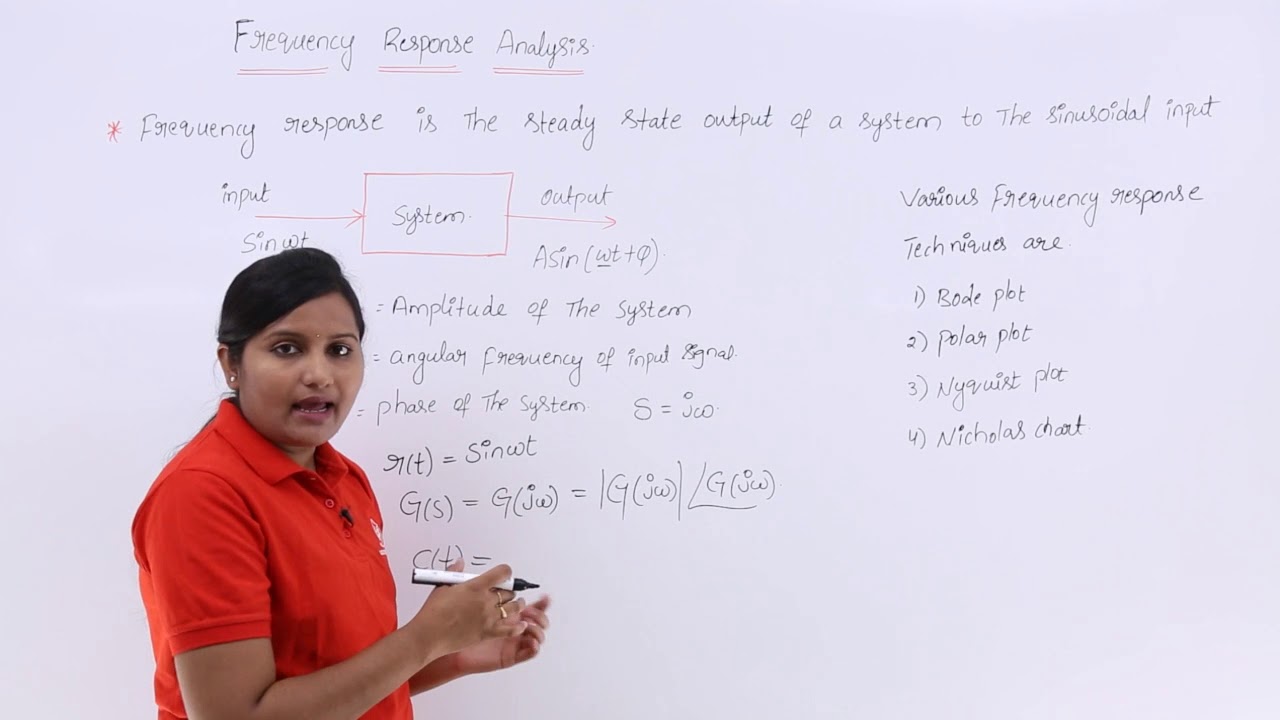 Frequency Response Analysis.
* Frequency response is The steady state output of a system to The sinusoidal input
input
System.
output
Sinωt
Asin(ωt+φ).
= Amplitude of The System
= angular Frequency of input signal.
= phase of The System. S = jω.
r(t) = Sinωt
G(s) = G(jω) = |G(jω)| ∠G(jω).
C(t) =
Various Frequency response
Techniques are.
1) Bode plot
2) Polar plot
3) Nyquist plot
4) Nicholas chart.